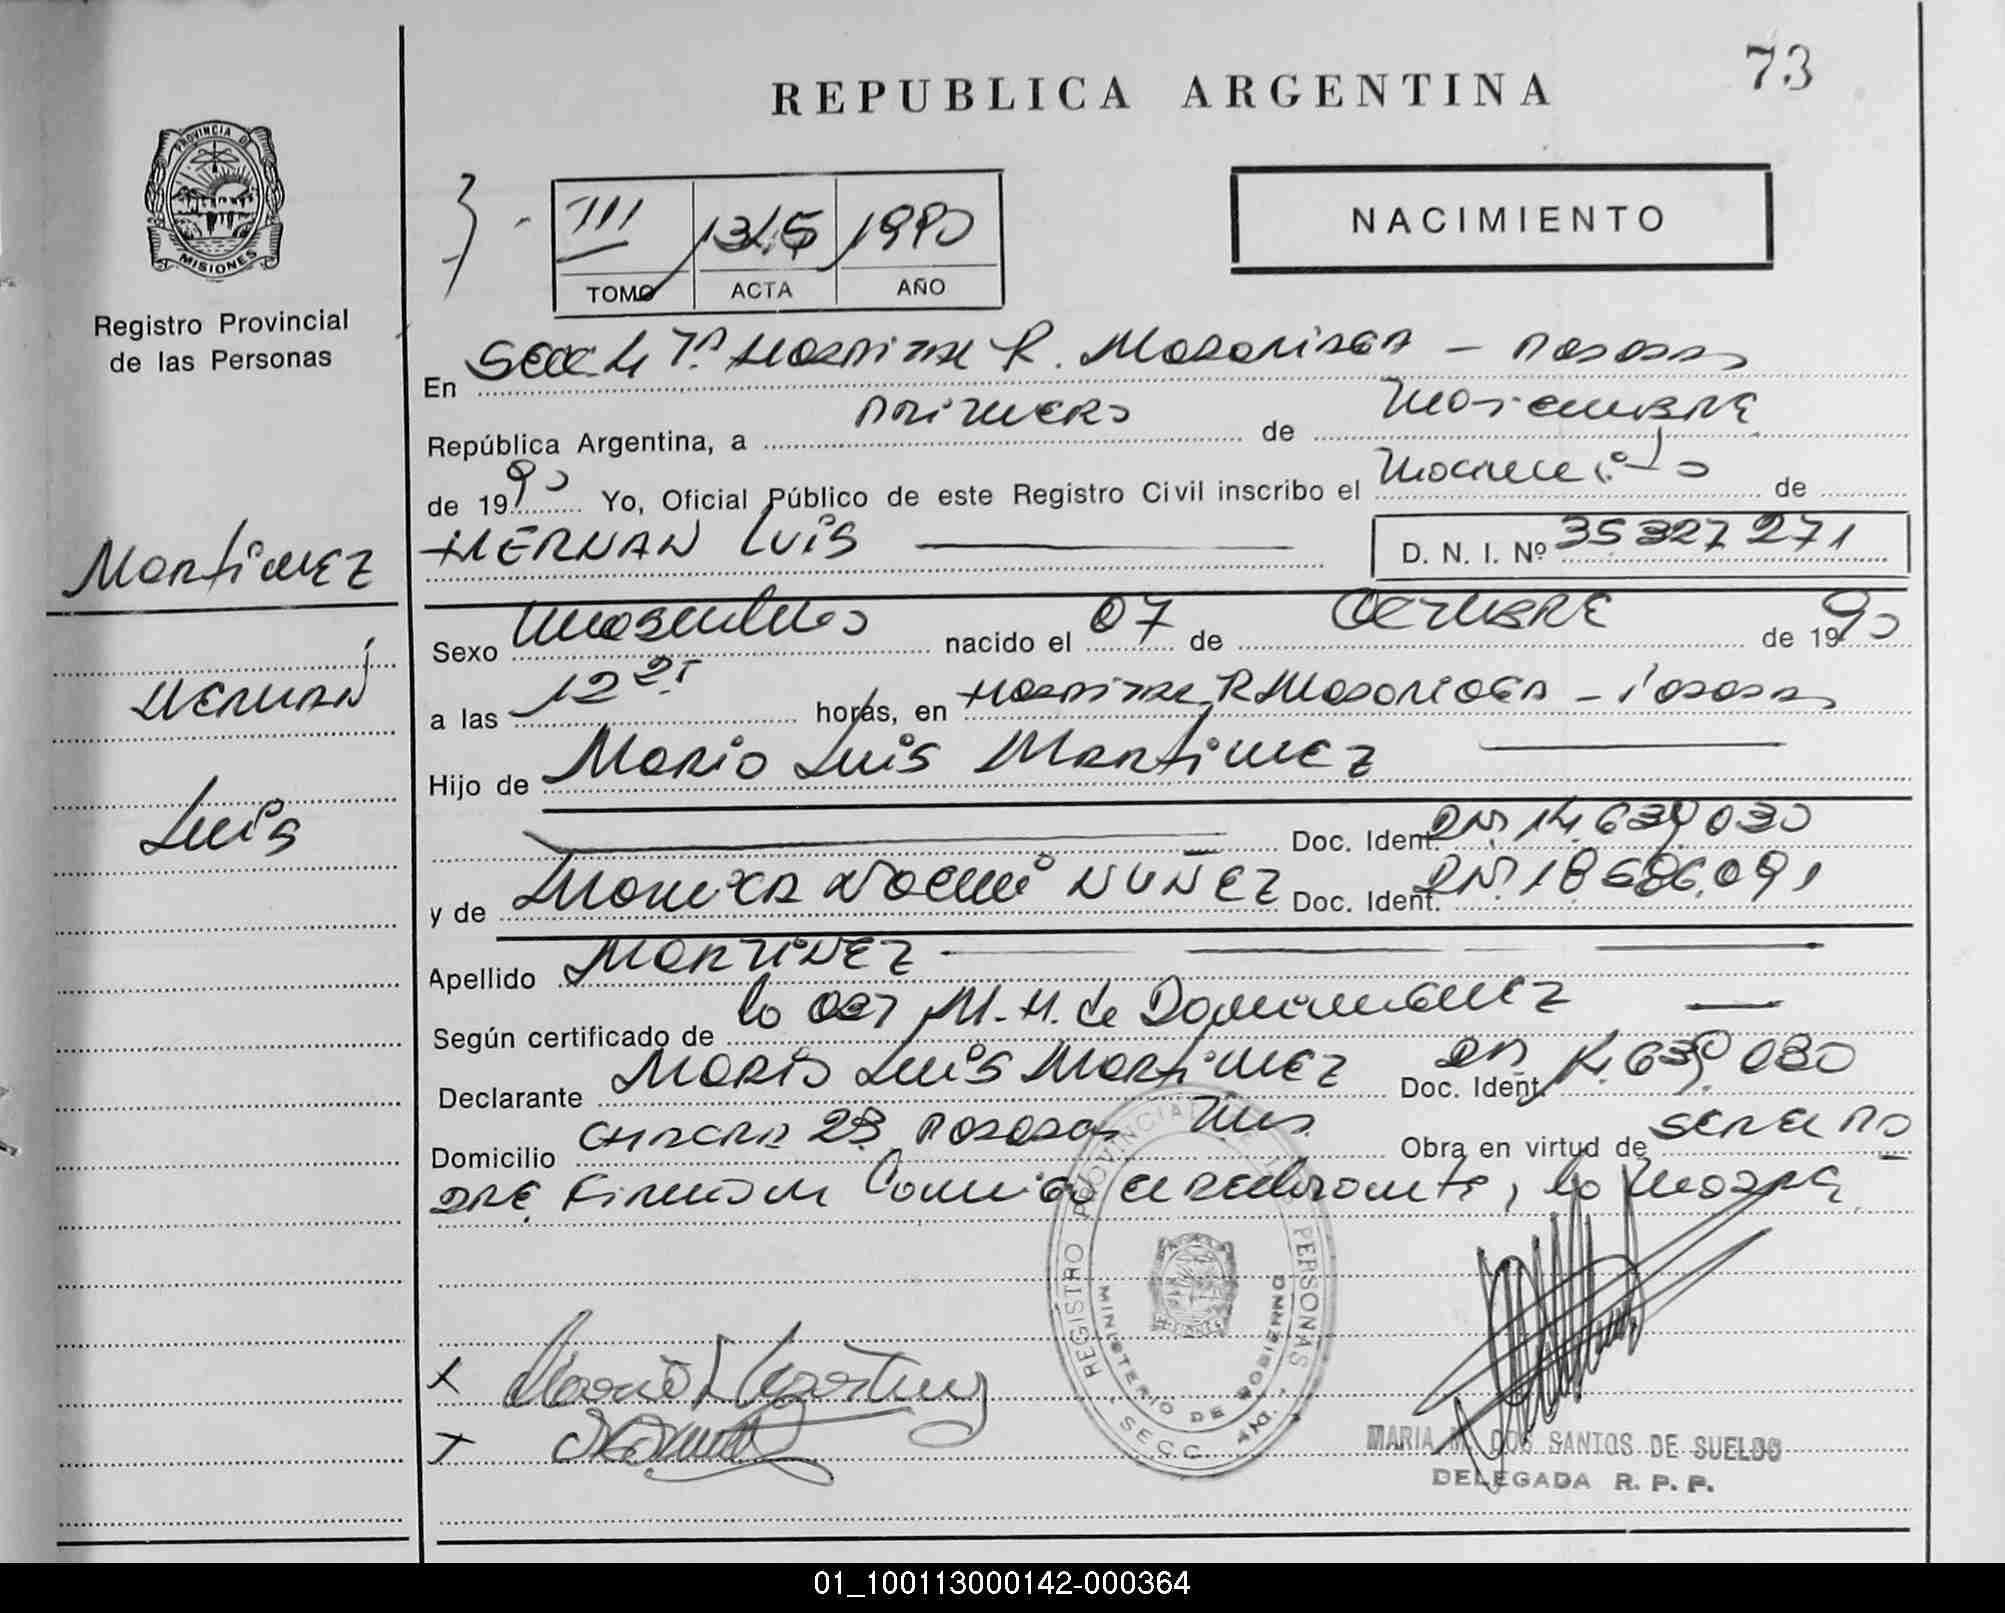 73
REPUBLICA ARGENTINA
PROVINCIA DE
MISIONES
Registro Provincial
de las Personas
III 1315 1990
TOMO ACTA AÑO
NACIMIENTO
En Secc 4 7ª Hospital R. Madariaga - Posadas
República Argentina, a primero de Noviembre
de 1990 Yo, Oficial Público de este Registro Civil inscribo el Nacimiento de
HERNAN LUIS D. N. I. Nº 35327271
Martinez
Hernán
Luis
Sexo Masculino nacido el 07 de Octubre de 1990
a las 12 25 horas, en Hospital R Madariaga - Posadas
Hijo de Mario Luis Martinez
Doc. Ident. DNI 14.639.030
y de Monica Noemi NUÑEZ Doc. Ident. DNI 18686.091
Apellido MARTINEZ
Según certificado de la M. H. de Dominguez
Declarante Mario Luis Martinez Doc. Ident. DNI 14.639.030
Domicilio CHACRA 23 Posadas Mis. Obra en virtud de ser el pa
dre Firman Conmigo el declarante, la madre
REGISTRO PROVINCIAL DE LAS PERSONAS
MINISTERIO DE GOBIERNO
SECC.
Mario L Martinez
MARIA M. DOS SANTOS DE SUELDO
DELEGADA R. P. P.
01_100113000142-000364